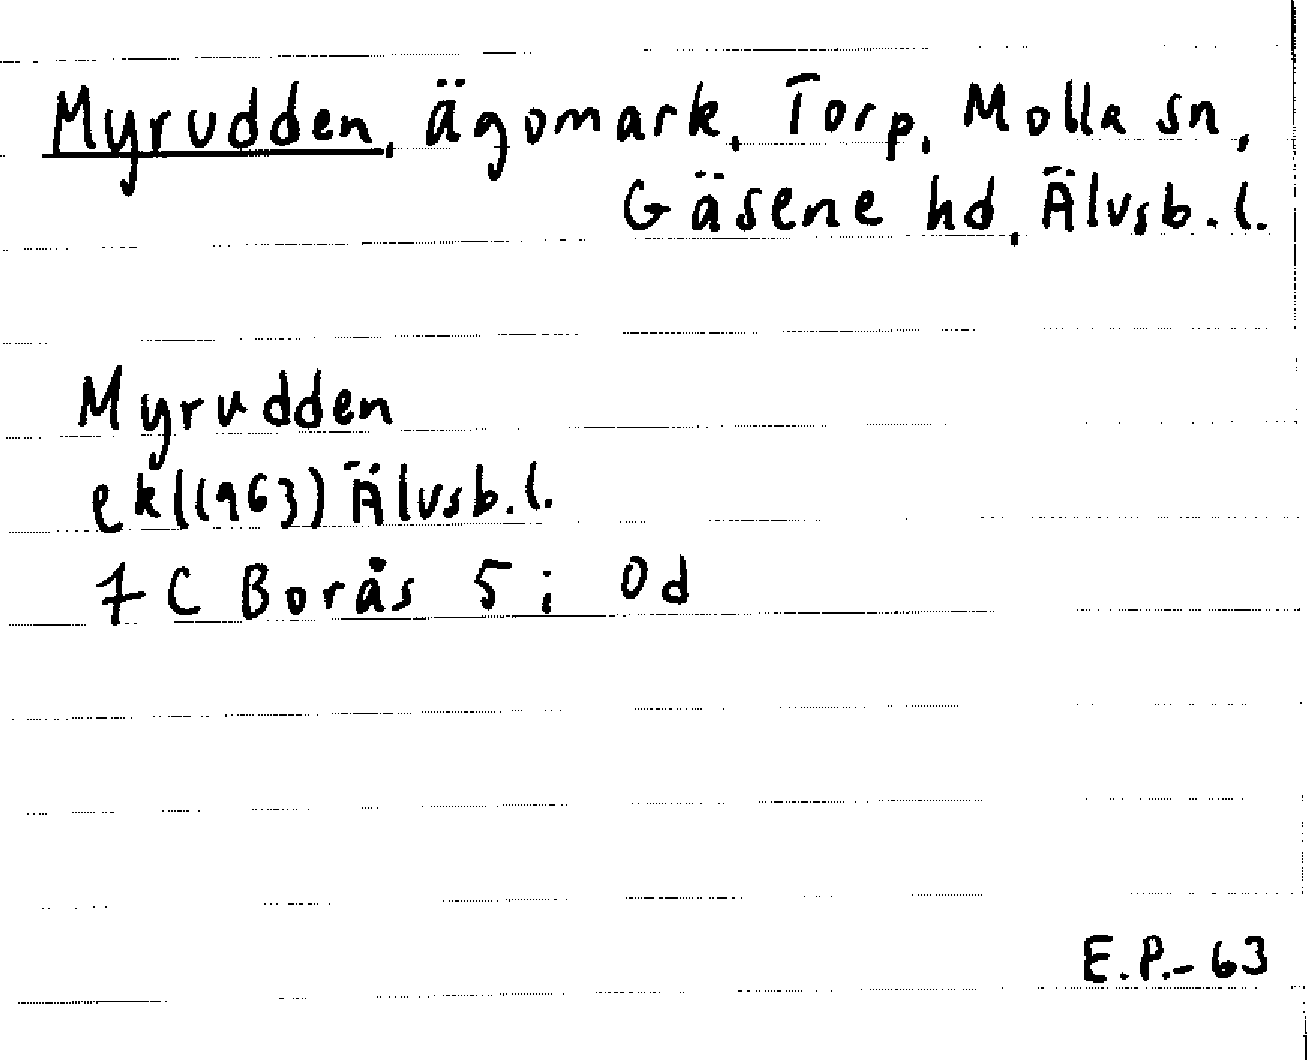 Myrudden, ägomark, Torp, Molla sn,
Gäsene hd, Älvsb. l.
Myrudden
ek((1963) Älvsb. l.
7 C Borås 5 i 0d
E.P.-63